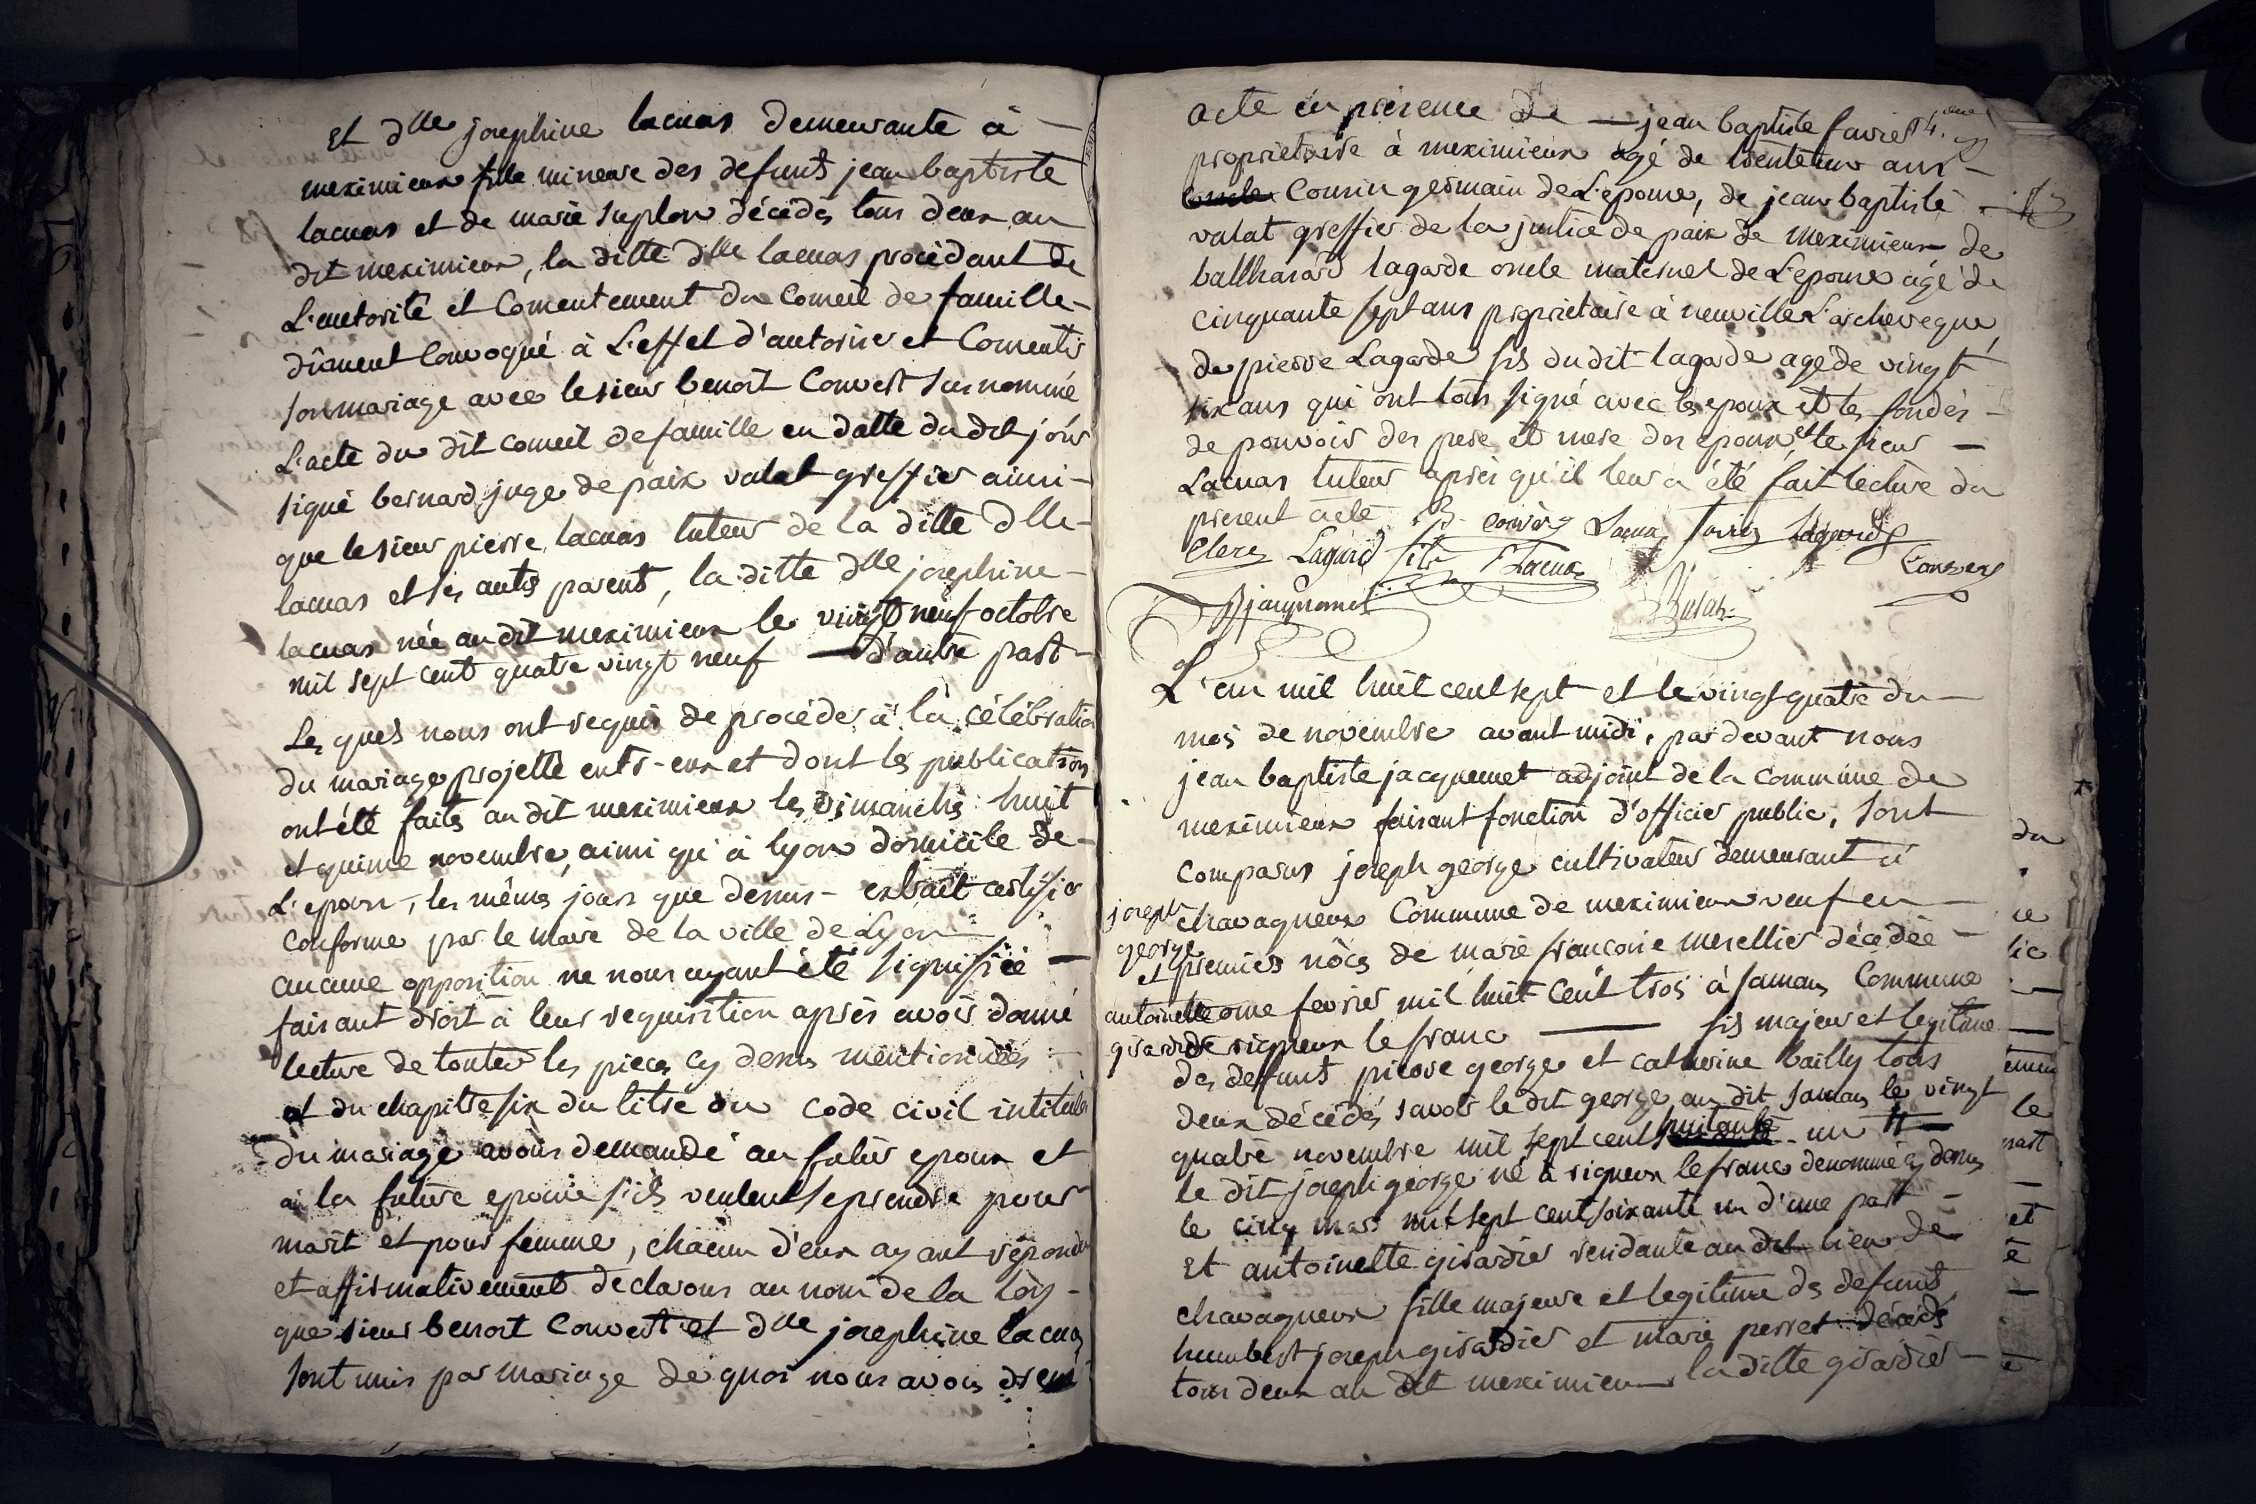 et dlle josephine lacuas demeurante à
meximieux fille mineure des defunts jean baptiste
lacuas et de marie decédés tous deux au
dit meximieux, la ditte dlle lacuas procédant de
L'autorité et consentement du conseil de famille
dûment convoqué à L'effet d'autoriser et consentir
son mariage avec le sieur benoît convert surnommé
L'acte du dit conseil de famille en datte du dit jour
signé bernard juge de paix valat greffier ainsi
que le sieur pierre lacuas tuteur de la ditte dlle
lacuas et ses autres parents, la ditte dlle josephine
lacuas née au dit meximieux le vingt neuf octobre
mil sept cent quatre vingt neuf — d'autre part
Les quels nous ont requis de procéder à la célébration
du mariage projetté entr-eux et dont les publications
ont été faites au dit meximieux les dimanches huit
et quinze novembre, ainsi qu'à lyon domicile de
L'epoux, les mêmes jours que dessus - extrait certifié
conforme par le maire de la ville de Lyon
aucune opposition ne nous ayant été signifiée
faisant droit à leur requisition après avoir donné
lecture de toutes les pieces cy dessus mentionnées
et du chapitre six du titre du code civil intitulé
du mariage avons demandé au futur epoux et
à la future epouse s'ils veulent se prendre pour
mari et pour femme, chacun d'eux ayant répondu
et affirmativement declarons au nom de la loy
que sieur benoit convert et dlle josephine lacuas
sont unis par mariage de quoi nous avons dressé
acte en présence de — jean baptiste favier
proprietaire à meximieux agé de trente ans
oncle cousin germain de L'epouse, de jean baptiste
valat greffier de la justice de paix de meximieux de
balthazard lagarde oncle maternel de L'epouse agé de
cinquante sept ans proprietaire à neuville L'archeveque,
de pierre Lagarde fils du dit lagarde agé de vingt
six ans qui ont tous signé avec les epoux et les fondés
de pouvoir des pere et mere des epoux et le sieur
Lacuas tuteur après qu'il leur a été fait lecture du
present acte. Lacuas favier Lagarde
Clerc Lagarde fils Lacuas Convers
jacquemet
L'an mil huit cent sept et le vingt quatre du
mois de novembre avant midi, par devant nous
jean baptiste jacquemet adjoint de la commune de
meximieux faisant fonction d'officier public, sont
comparus joseph george cultivateur demeurant à
chavagneux commune de meximieux veuf en
joseph
george
et
antoinette
girardier
premières nôces de marie françoise décédée
onze fevrier mil huit cent trois à samans commune
de rigneux le franc — fils majeur et legitime
des deffunts pierre george et catherine bailly tous
deux décédés savoir le dit george au dit samans le vingt
quatre novembre mil sept cent huitante un
le dit joseph george né à rigneux le franc denommé cy dessus
le cinq mars mil sept cent soixante un d'une part
et antoinette girardier residante au dit lieu de
chavagneux fille majeure et legitime des defunts
humbert joseph girardier et marie perret décédés
tous deux au dit meximieux la ditte girardier
du
le
part
et